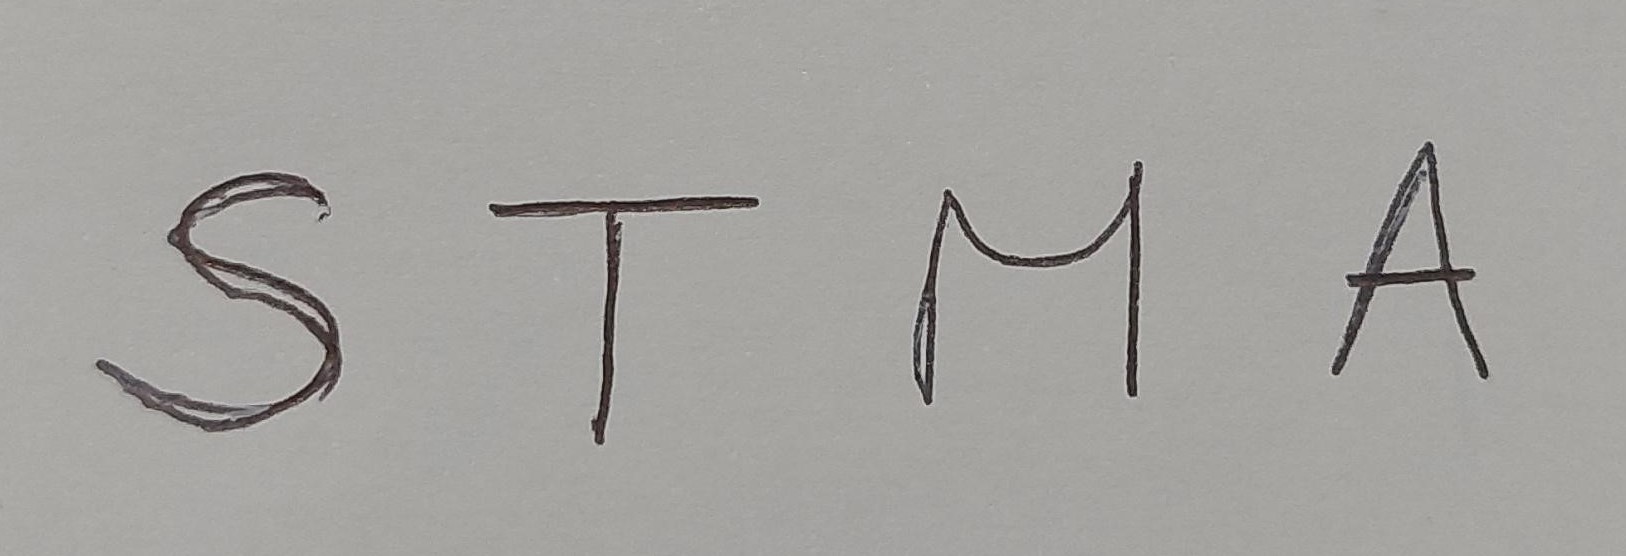 S T M A